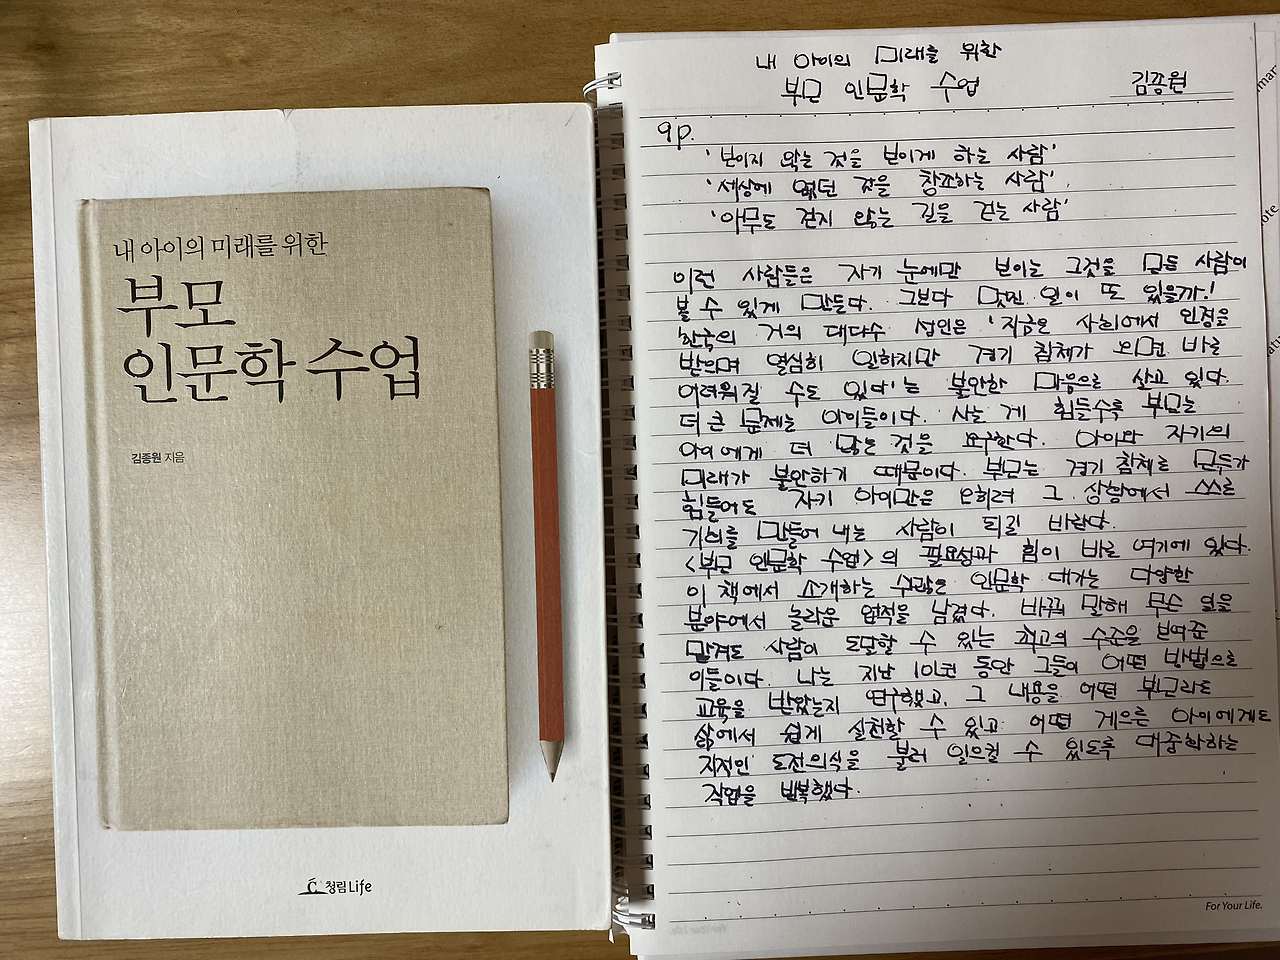 내 아이의 미래를 위한
부모
인문학 수업
김종원 지음
청림Life
내 아이의 미래를 위한
부모 인문학 수업 김종원
9p.
'보이지 않는 것을 보이게 하는 사람'
'세상에 없던 것을 창조하는 사람'
'아무도 걷지 않는 길을 걷는 사람'
이런 사람들은 자기 눈에만 보이는 그것을 모든 사람이
볼 수 있게 만든다. 그보다 멋진 일이 또 있을까!
한국의 거의 대다수 성인은 '지금은 사회에서 인정을
받으며 열심히 일하지만 경기 침체가 오면 바로
어려워질 수도 있다'는 불안한 마음으로 살고 있다.
더 큰 문제는 아이들이다. 사는 게 힘들수록 부모는
아이에게 더 많은 것을 요구한다. 아이와 자기의
미래가 불안하기 때문이다. 부모는 경기 침체로 모두가
힘들어도 자기 아이만은 오히려 그 상황에서 스스로
기회를 만들어 내는 사람이 되길 바란다.
<부모 인문학 수업>의 필요성과 힘이 바로 여기에 있다.
이 책에서 소개하는 수많은 인문학 대가는 다양한
분야에서 놀라운 업적을 남겼다. 바꿔 말해 무슨 일을
맡겨도 사람이 도달할 수 있는 최고의 수준을 보여준
이들이다. 나는 지난 10년 동안 그들이 어떤 방법으로
교육을 받았는지 연구했고, 그 내용을 어떤 부모라도
삶에서 쉽게 실천할 수 있고 어떤 게으른 아이에게도
지적인 도전의식을 불러 일으킬 수 있도록 대중화하는
작업을 반복했다.
For Your Life.